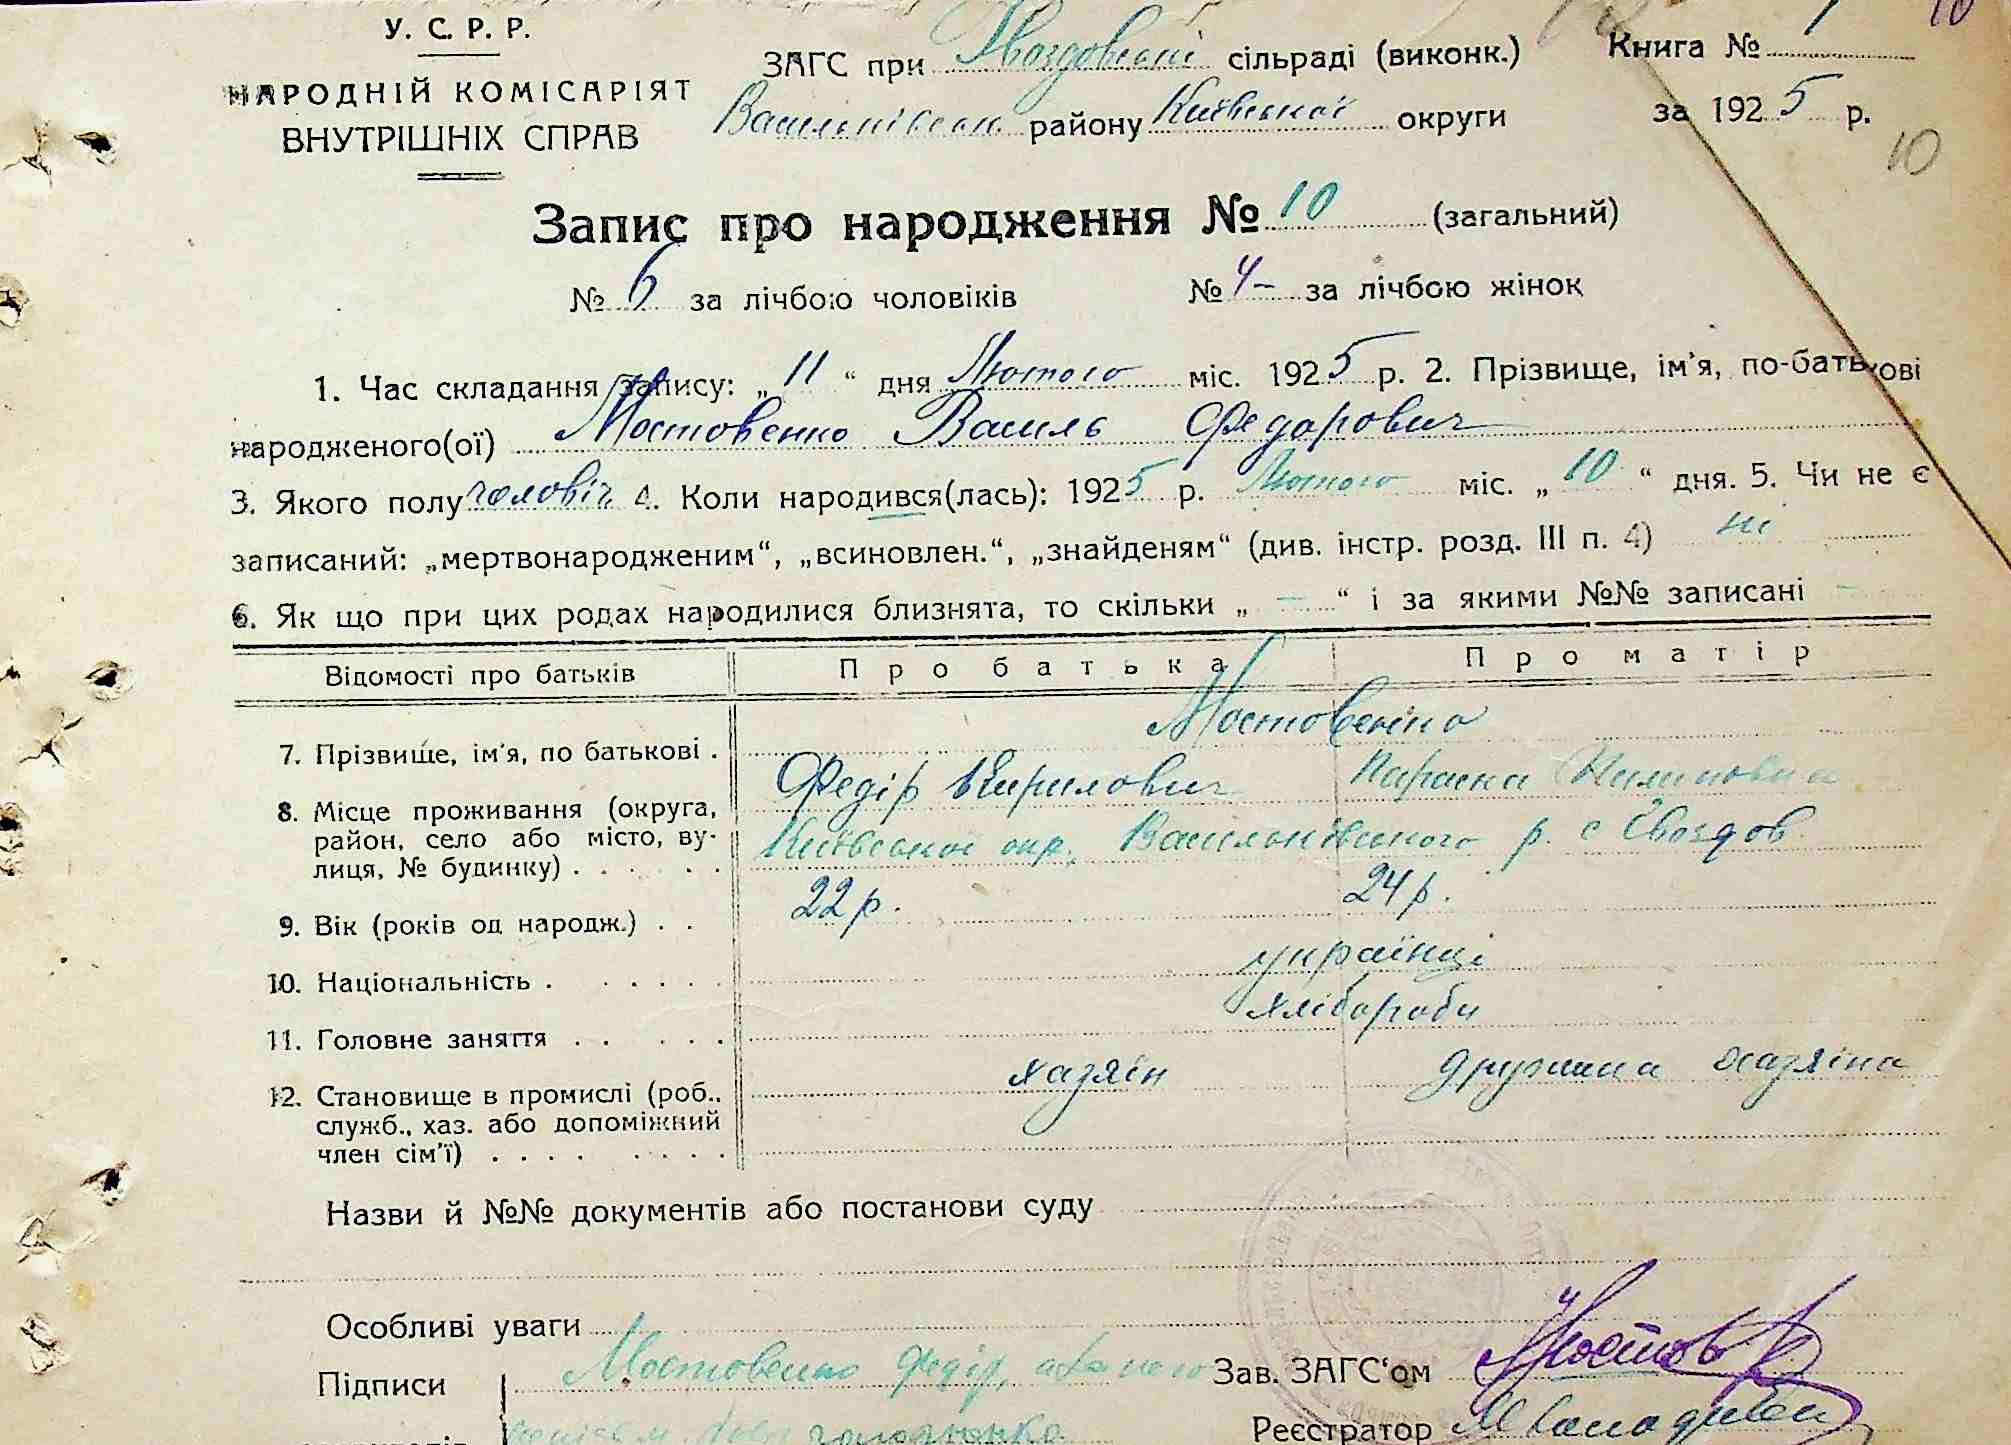 У. С. Р. Р.
НАРОДНІЙ КОМІСАРІЯТ
ВНУТРІШНІХ СПРАВ
ЗАГС при Гвоздовській сільраді (виконк.)
Васильківськ. району Київської округи
Книга № 1
за 1925 р.
10
10
Запис про народження № 10 (загальний)
№ 6 за лічбою чоловіків № 4 – за лічбою жінок
1. Час складання запису: „ 11 “ дня Лютого міс. 1925 р. 2. Прізвище, ім'я, по-батькові
народженого(ої) Мостовенко Василь Федарович
3. Якого полу чоловіч. 4. Коли народився(лась): 1925 р. Лютого міс. „ 10 “ дня. 5. Чи не є
записаний: „мертвонародженим“, „всиновлен.“, „знайденям“ (див. інстр. розд. III п. 4) ні
6. Як що при цих родах народилися близнята, то скільки „ — “ і за якими №№ записані —
Відомості про батьків Про батька Про матір
Мостовенко
7. Прізвище, ім'я, по батькові . Федір Кирилович Параска Пилиповна
8. Місце проживання (округа,
район, село або місто, ву-
лиця, № будинку) . . . . . .
Київської окр. Васильківського р. с Гвоздов
9. Вік (років од народж.) . . 22 р. 24 р.
10. Національність . . . . . . українці
11. Головне заняття . . . . . хлібороби
12. Становище в промислі (роб..
служб., хаз. або допоміжний
член сім'ї) . . . . . . . . .
хазяін дружина хазяіна
Назви й №№ документів або постанови суду
Особливі уваги
Підписи Мостовенко Федір,
Зав. ЗАГС‘ом
Реєстратор